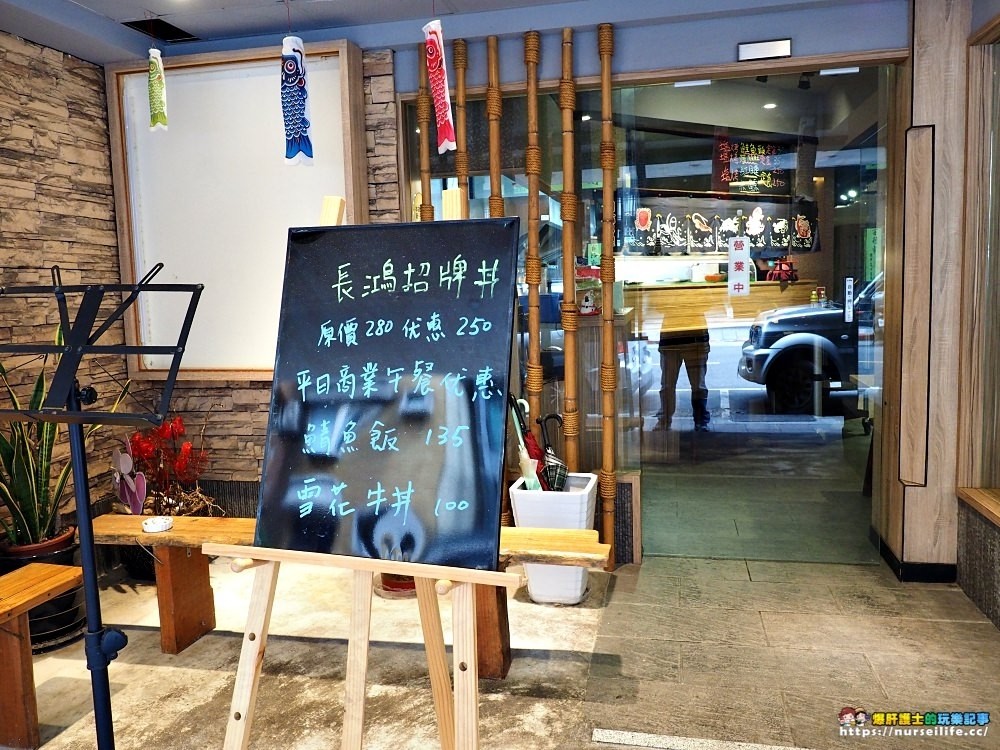 長鴻招牌丼
原價280 优惠 250
平日商業午餐优惠
鯖魚飯 135
雪花牛丼 100
營業中
爆肝護士的玩樂記事
https://nurseilife.cc/